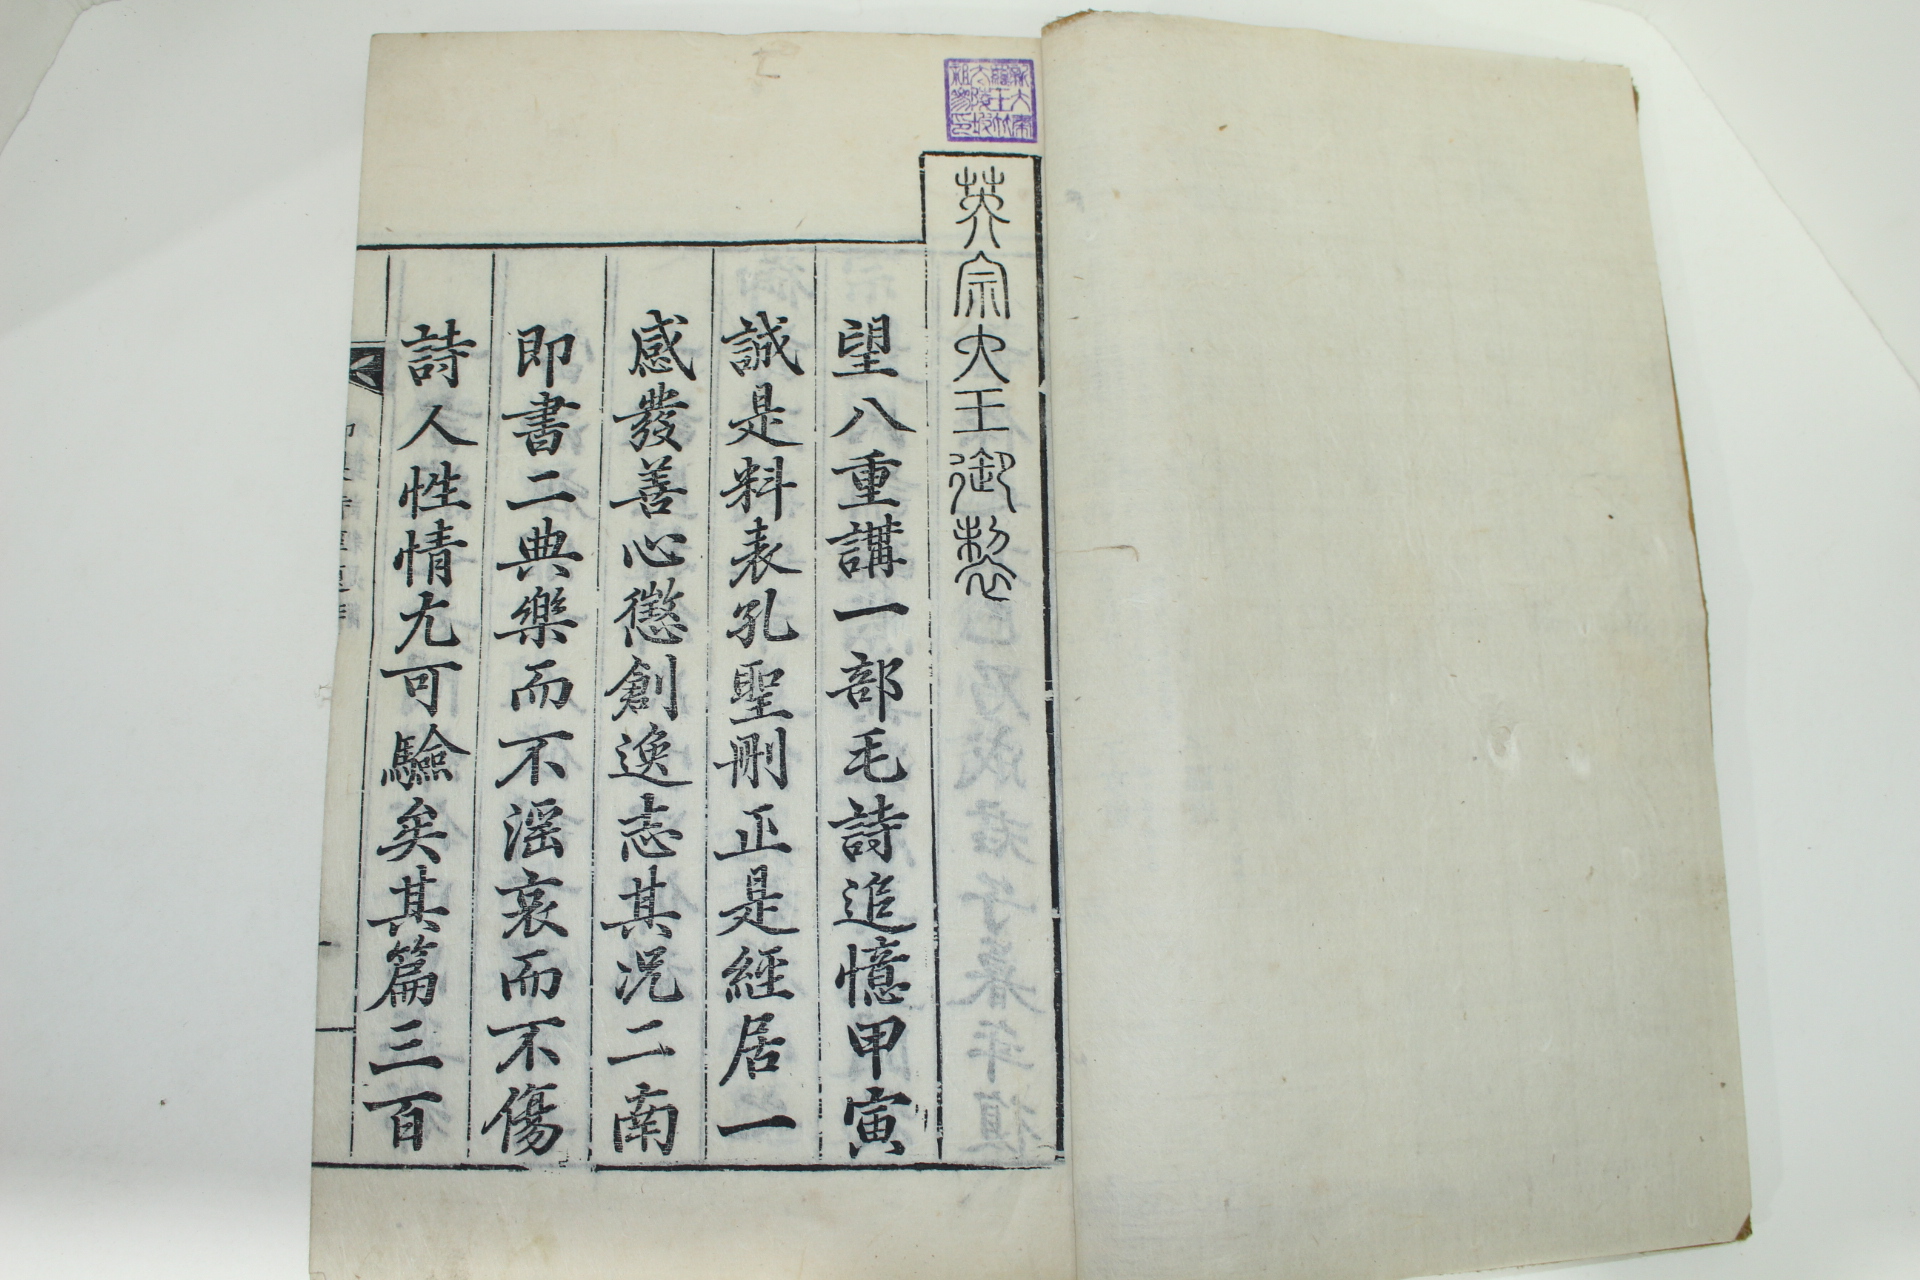 英宗大王御製
望八重講一部毛詩追憶甲寅
誠是料表孔聖刪正是經居一
感發善心懲創逸志其况二南
即書二典樂而不淫哀而不傷
詩人性情尤可驗矣其篇三百